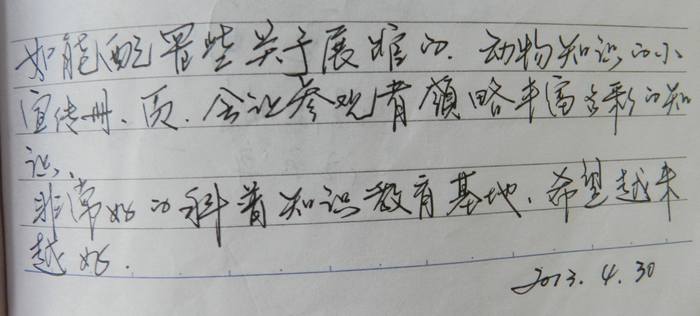 如能配置些关于展馆的、动物知识的小
宣传册、页、会让参观者领略丰富多彩的知
识、
非常好的科普知识教育基地、希望越来
越好.
2013.4.30